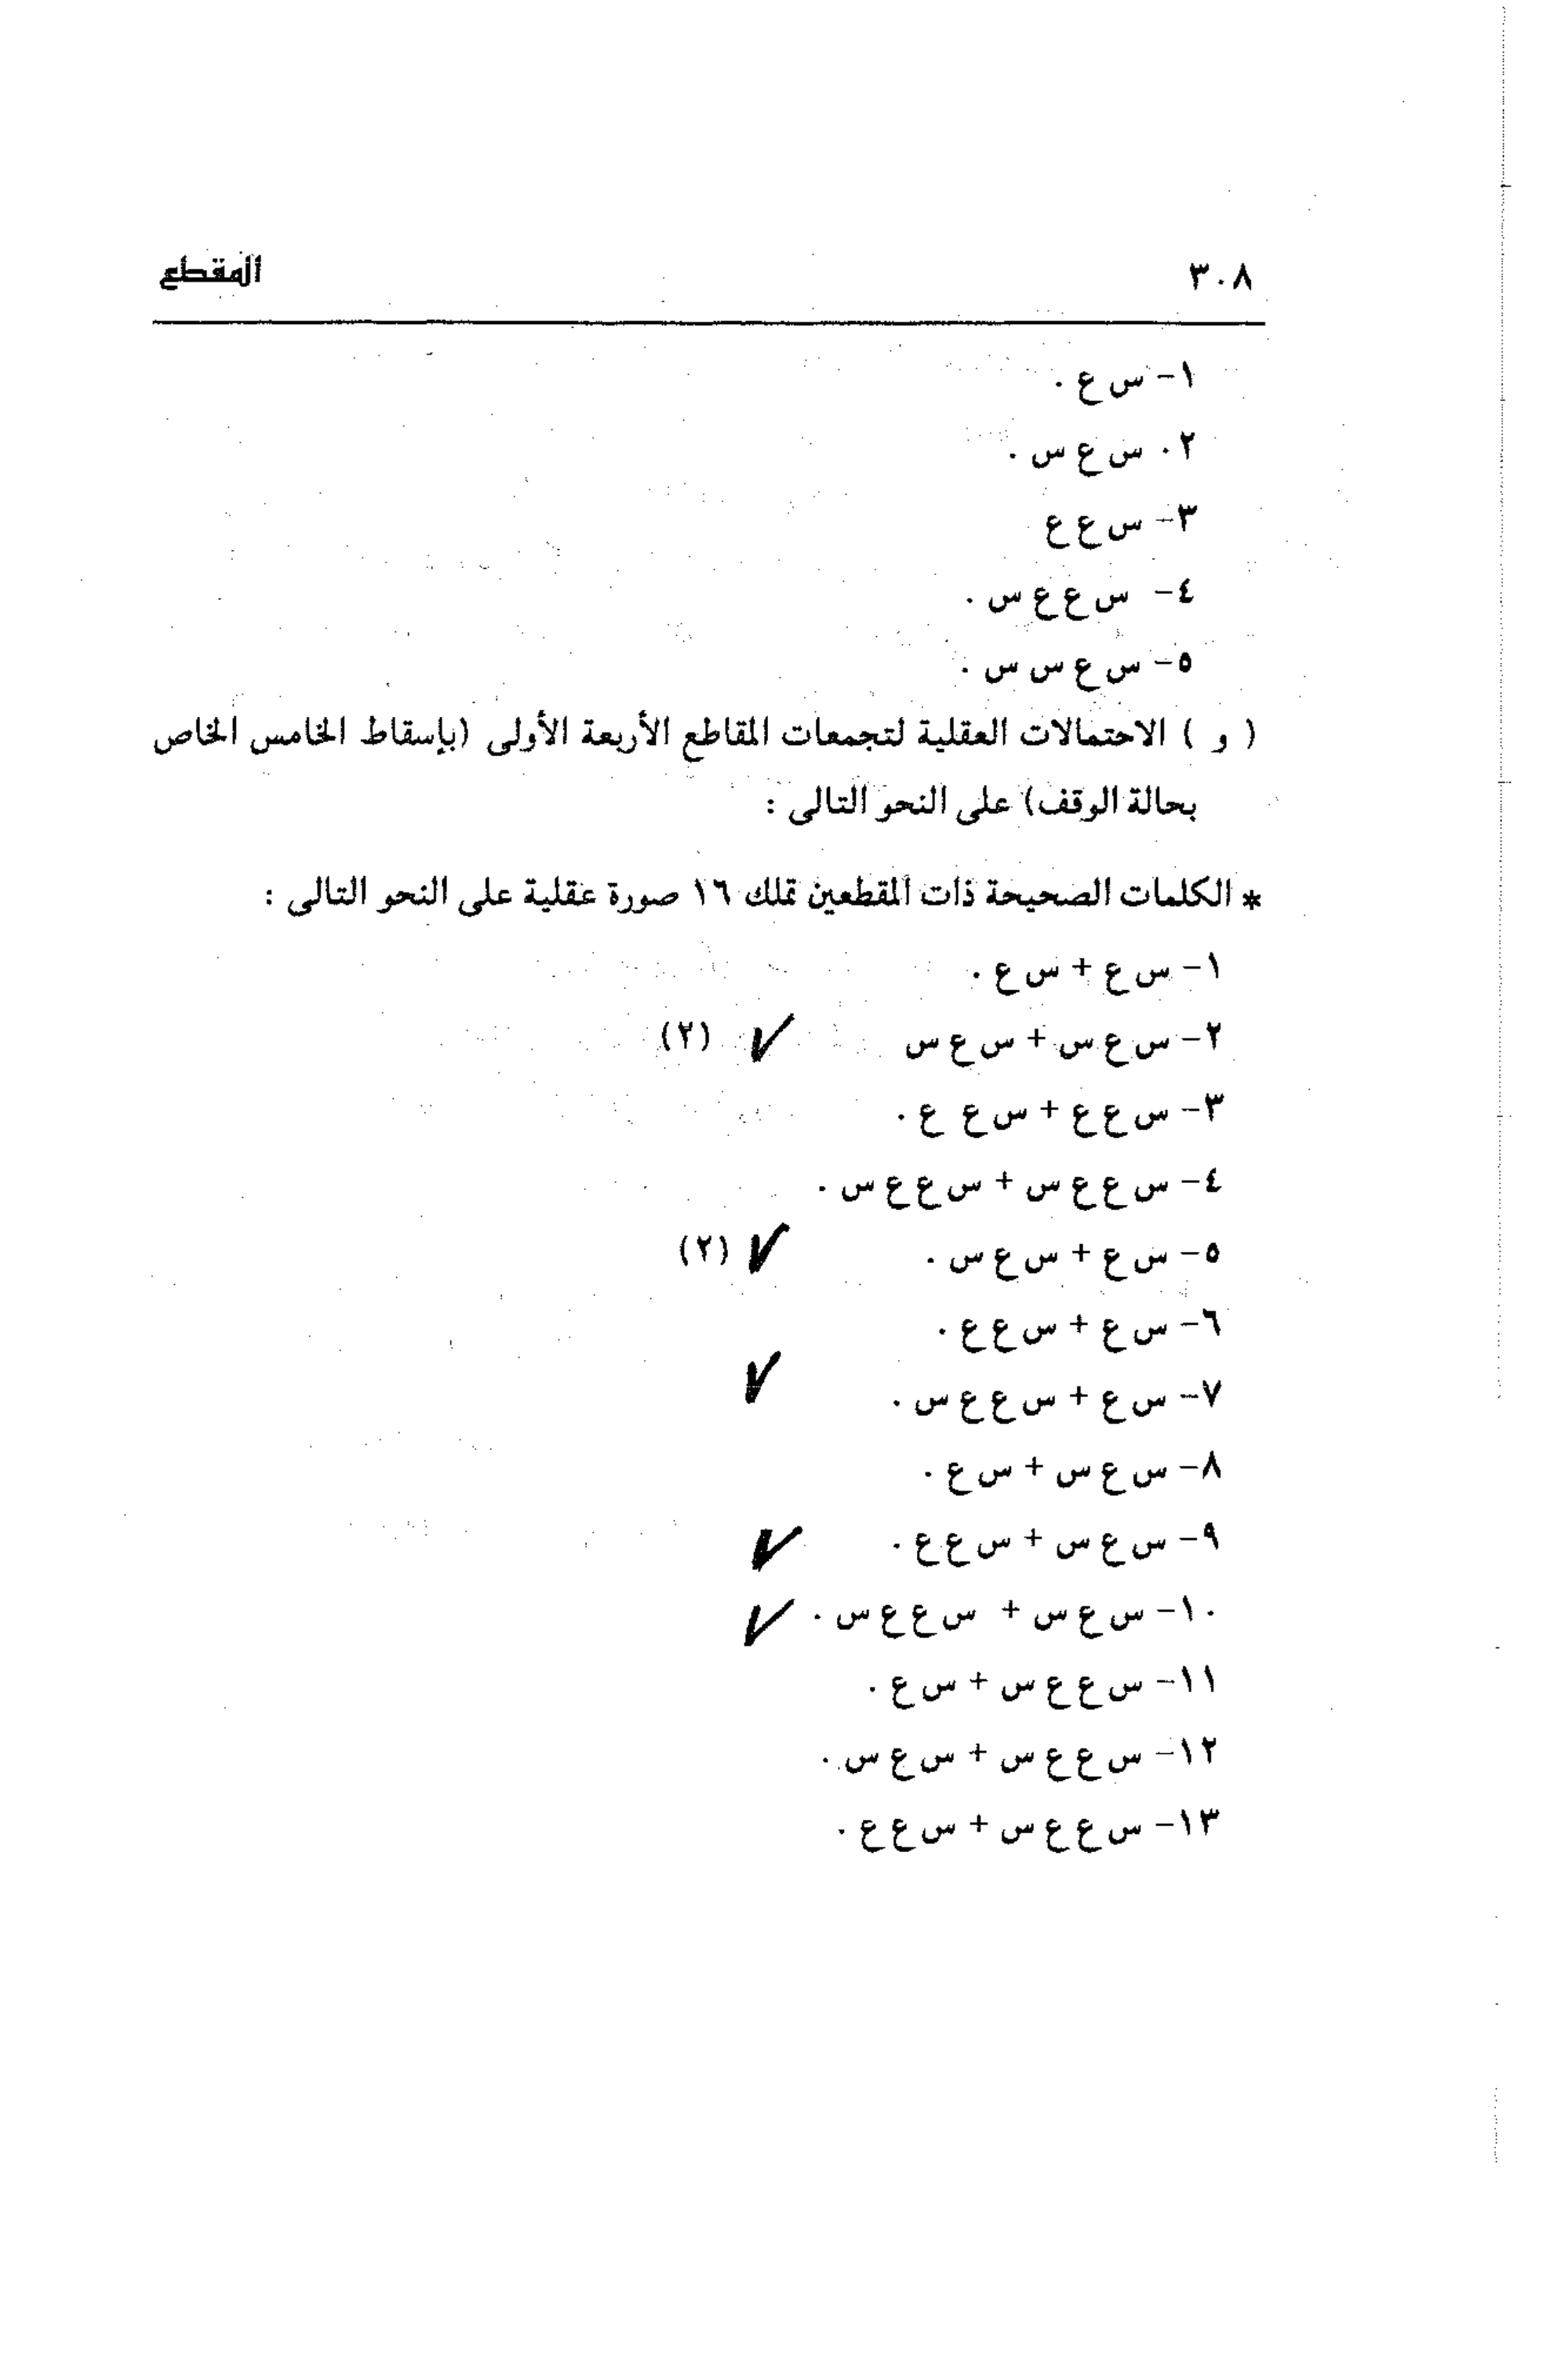 ٣٠٨ المقطع
١- س ع .
٢. س ع س .
٣- س ع ع
٤- س ع ع س .
٥- س ع س س .
( و ) الاحتمالات العقلية لتجمعات المقاطع الأربعة الأولى (بإسقاط الخامس الخاص
بحالة الوقف) على النحو التالى :
* الكلمات الصحيحة ذات المقطعين تملك ١٦ صورة عقلية على النحو التالى :
١- س ع + س ع .
٢- س ع س + س ع س ✓ (٢)
٣- س ع ع + س ع ع .
٤- س ع ع س + س ع ع س .
٥- س ع + س ع س . ✓ (٢)
٦- س ع + س ع ع .
٧- س ع + س ع ع س . ✓
٨- س ع س + س ع .
٩- س ع س + س ع ع . ✓
١٠- س ع س + س ع ع س . ✓
١١- س ع ع س + س ع .
١٢- س ع ع س + س ع س .
١٣- س ع ع س + س ع ع .